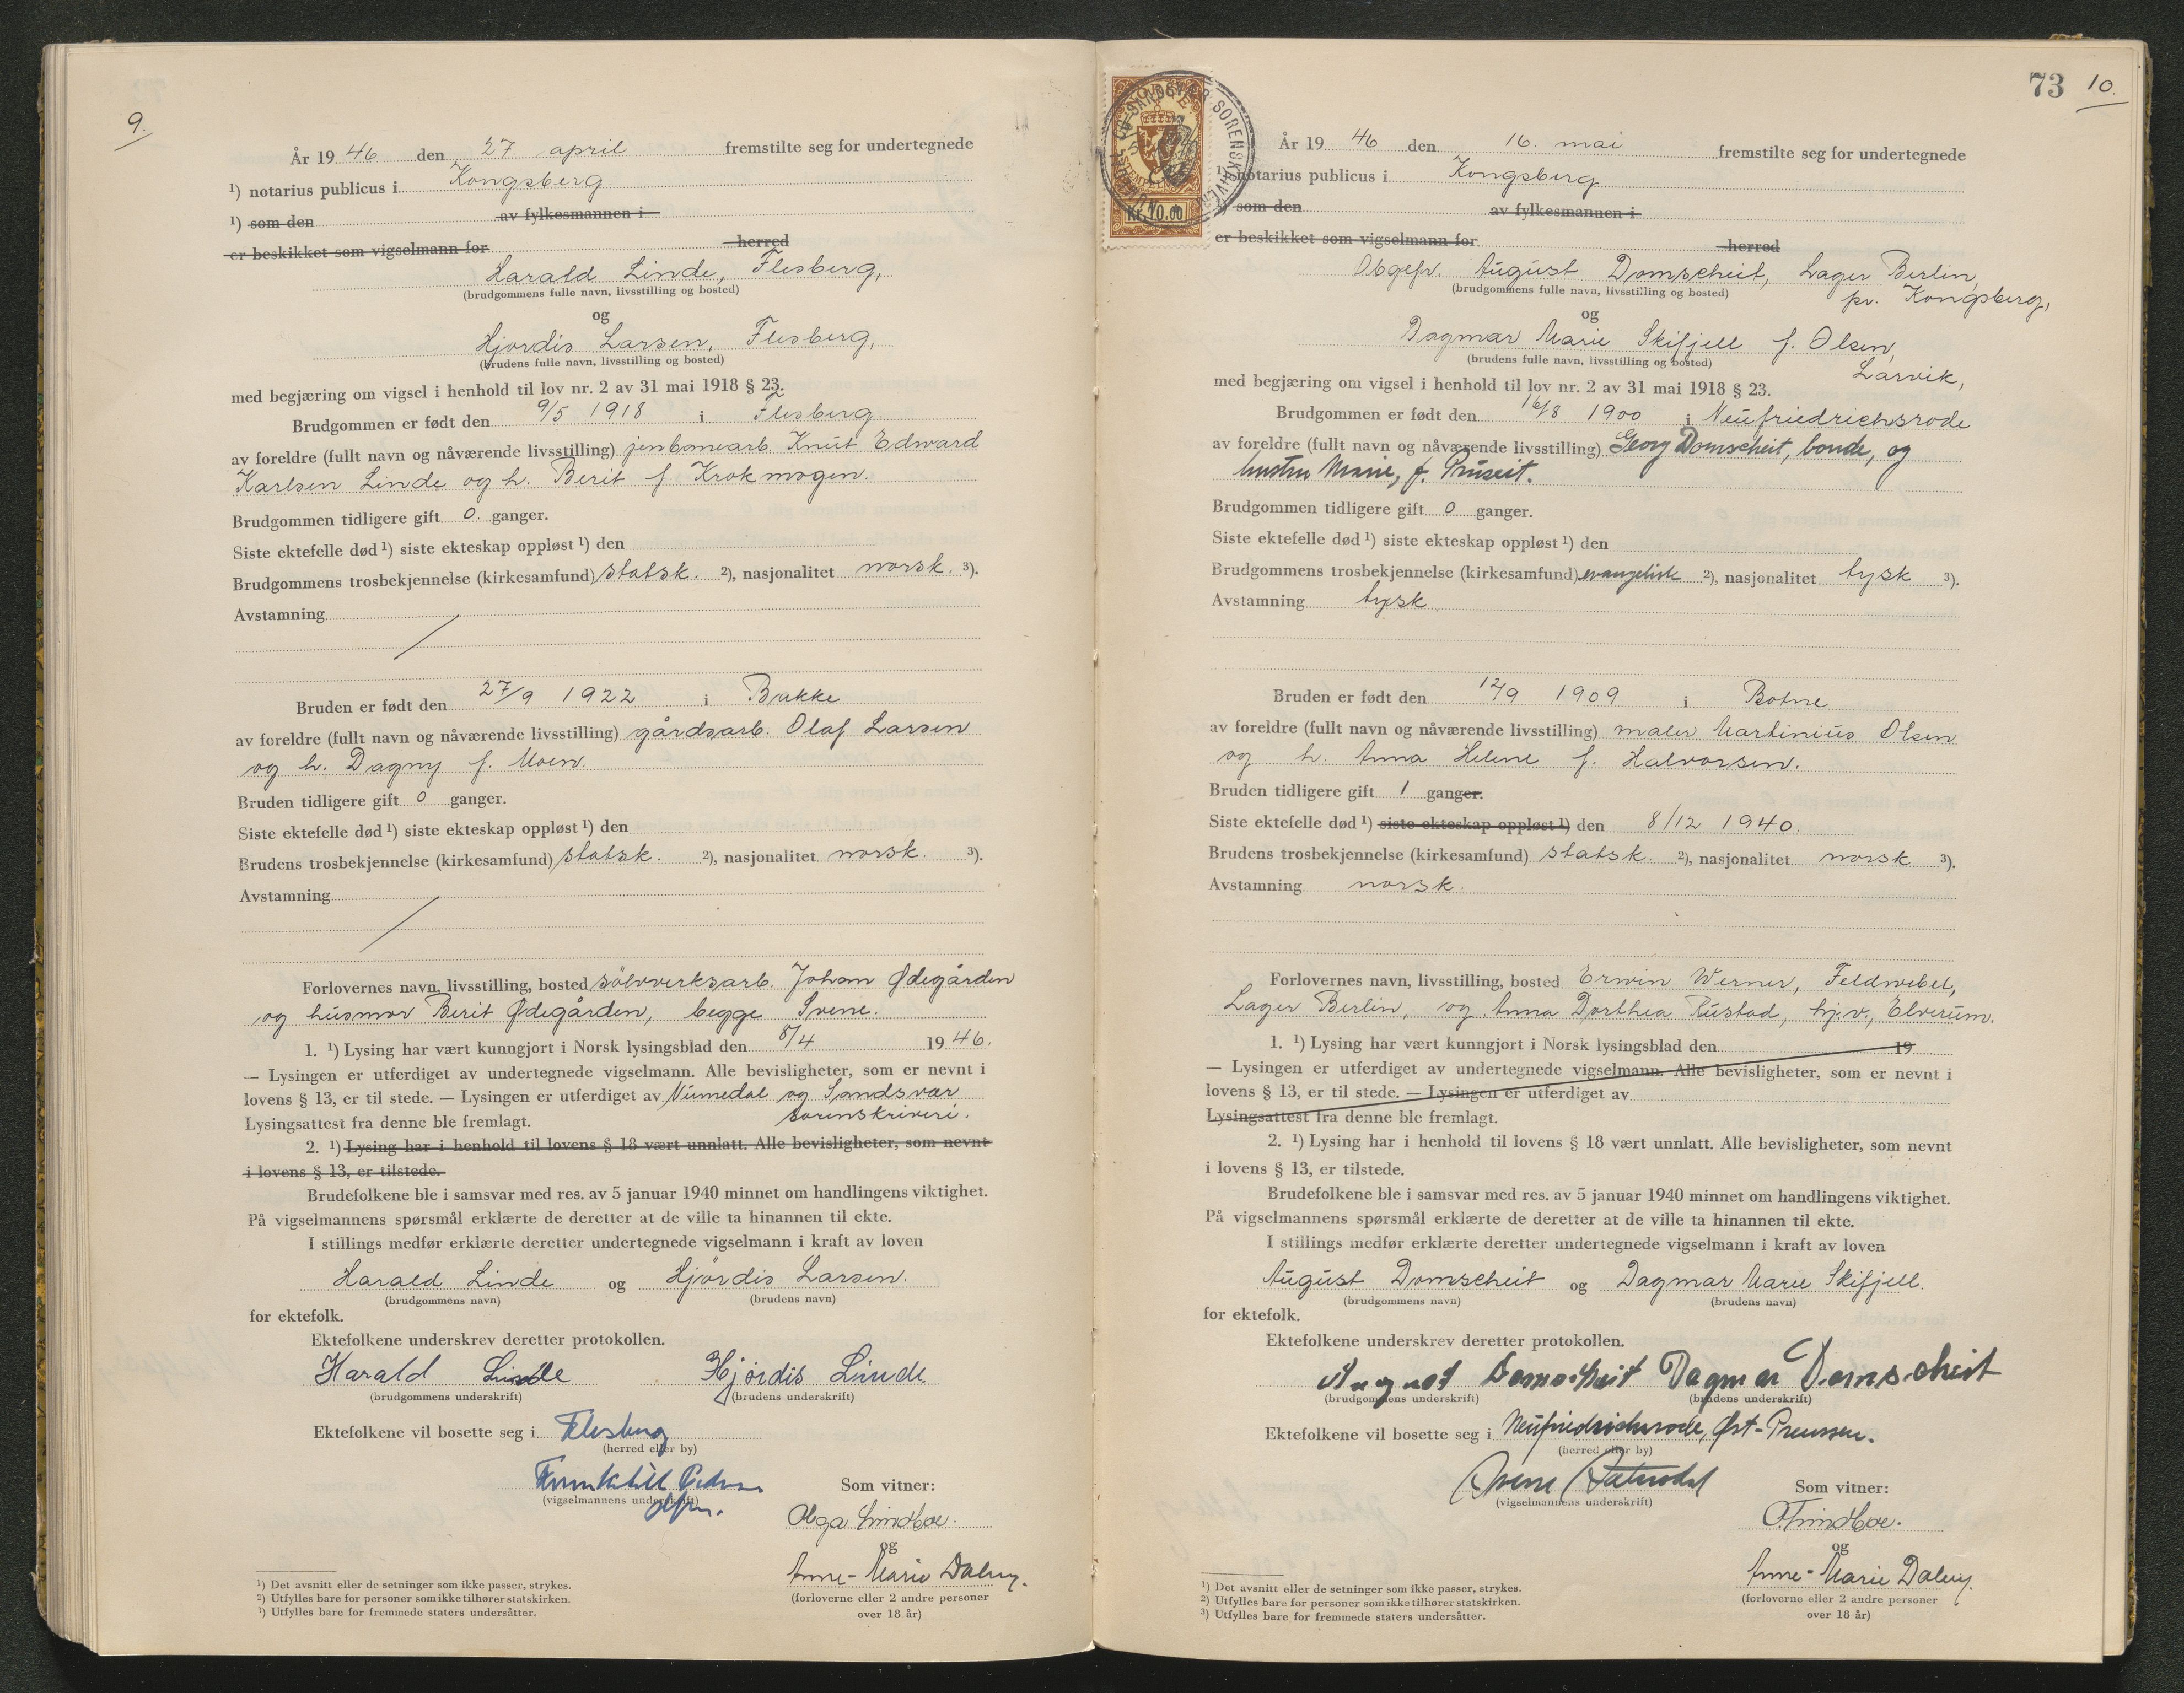 9.
År 19 46 den 27 april fremstilte seg for undertegnede
¹) notarius publicus i Kongsberg
¹) som den av fylkesmannen i
er beskikket som vigselmann for herred
Harald Linde, Flesberg,
(brudgommens fulle navn, livsstilling og bosted)
og
Hjørdis Larsen, Flesberg,
(brudens fulle navn, livsstilling og bosted)
med begjæring om vigsel i henhold til lov nr. 2 av 31 mai 1918 § 23.
Brudgommen er født den 9/5 1918 i Flesberg
av foreldre (fullt navn og nåværende livsstilling) jernbanearb. Knut Edward
Karlsen Linde og h. Berit f. Krokmogen.
Brudgommen tidligere gift 0. ganger.
Siste ektefelle død ¹) siste ekteskap oppløst ¹) den
Brudgommens trosbekjennelse (kirkesamfund) statsk. ²), nasjonalitet norsk. ³).
Avstamning /
Bruden er født den 27/9 1922 i Bakke
av foreldre (fullt navn og nåværende livsstilling) gårdsarb. Olaf Larsen
og h. Dagny f. Moen.
Bruden tidligere gift 0 ganger.
Siste ektefelle død ¹) siste ekteskap oppløst ¹) den
Brudens trosbekjennelse (kirkesamfund) statsk. ²), nasjonalitet norsk. ³).
Avstamning /
Forlovernes navn, livsstilling, bosted sölvverksarb. Johan Ødegården
og husmor Berit Ødegården, begge Svene.
1. ¹) Lysing har vært kunngjort i Norsk lysingsblad den 8/4 19 46.
— Lysingen er utferdiget av undertegnede vigselmann. Alle bevisligheter, som er nevnt i
lovens § 13, er til stede. — Lysingen er utferdiget av Numedal og Sandsvær
sorenskriveri.
Lysingsattest fra denne ble fremlagt.
2. ¹) Lysing har i henhold til lovens § 18 vært unnlatt. Alle bevisligheter, som nevnt
i lovens § 13, er tilstede.
Brudefolkene ble i samsvar med res. av 5 januar 1940 minnet om handlingens viktighet.
På vigselmannens spørsmål erklærte de deretter at de ville ta hinannen til ekte.
I stillings medfør erklærte deretter undertegnede vigselmann i kraft av loven
Harald Linde og Hjørdis Larsen.
(brudgommens navn) (brudens navn)
for ektefolk.
Ektefolkene underskrev deretter protokollen.
Harald Linde Hjørdis Linde
(brudgommens underskrift) (brudens underskrift)
Ektefolkene vil bosette seg i Flesberg
(herred eller by)
(vigselmannens underskrift)
Som vitner:
Olga Lindboe.
og
Anne-Marie Dalen.
(forloverne eller 2 andre personer
over 18 år)
¹) Det avsnitt eller de setninger som ikke passer, strykes.
²) Utfylles bare for personer som ikke tilhører statskirken.
³) Utfylles bare for fremmede staters undersåtter.
73 10.
SORENSKRIVER
Kr. 10.00
År 19 46 den 16. mai fremstilte seg for undertegnede
¹) notarius publicus i Kongsberg
¹) som den av fylkesmannen i
er beskikket som vigselmann for herred
Obgefr. August Domscheit, Lager Berlin,
pr. Kongsberg,
(brudgommens fulle navn, livsstilling og bosted)
og
Dagmar Marie Skifjell f. Olsen,
Larvik,
(brudens fulle navn, livsstilling og bosted)
med begjæring om vigsel i henhold til lov nr. 2 av 31 mai 1918 § 23.
Brudgommen er født den 16/8 1900 i Neufriedrichsrode
av foreldre (fullt navn og nåværende livsstilling) Georg Domscheit, bonde, og
hustru Marie, f. Pruseit.
Brudgommen tidligere gift 0 ganger.
Siste ektefelle død ¹) siste ekteskap oppløst ¹) den
Brudgommens trosbekjennelse (kirkesamfund) evangelisk ²), nasjonalitet tysk ³).
Avstamning tysk.
Bruden er født den 12/9 1909 i Botne
av foreldre (fullt navn og nåværende livsstilling) maler Martinius Olsen
og h. Anna Helene f. Halvorsen.
Bruden tidligere gift 1 ganger.
Siste ektefelle død ¹) siste ekteskap oppløst ¹) den 8/12 1940.
Brudens trosbekjennelse (kirkesamfund) statsk. ²), nasjonalitet norsk ³).
Avstamning norsk.
Forlovernes navn, livsstilling, bosted Erwin Werner, Feldwebel,
Lager Berlin, og Anna Dorthea Rustad, hj.v., Elverum.
1. ¹) Lysing har vært kunngjort i Norsk lysingsblad den 19
— Lysingen er utferdiget av undertegnede vigselmann. Alle bevisligheter, som er nevnt i
lovens § 13, er til stede. — Lysingen er utferdiget av
Lysingsattest fra denne ble fremlagt.
2. ¹) Lysing har i henhold til lovens § 18 vært unnlatt. Alle bevisligheter, som nevnt
i lovens § 13, er tilstede.
Brudefolkene ble i samsvar med res. av 5 januar 1940 minnet om handlingens viktighet.
På vigselmannens spørsmål erklærte de deretter at de ville ta hinannen til ekte.
I stillings medfør erklærte deretter undertegnede vigselmann i kraft av loven
August Domscheit og Dagmar Marie Skifjell.
(brudgommens navn) (brudens navn)
for ektefolk.
Ektefolkene underskrev deretter protokollen.
August Domscheit Dagmar Domscheit
(brudgommens underskrift) (brudens underskrift)
Ektefolkene vil bosette seg i Neufriedrichsrode, Øst-Preussen.
(herred eller by)
(vigselmannens underskrift)
Som vitner:
O. Lindboe.
og
Anne-Marie Dalen.
(forloverne eller 2 andre personer
over 18 år)
¹) Det avsnitt eller de setninger som ikke passer, strykes.
²) Utfylles bare for personer som ikke tilhører statskirken.
³) Utfylles bare for fremmede staters undersåtter.